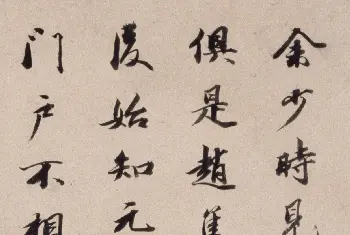 余少時見
俱是趙集
後始知元
门户不相